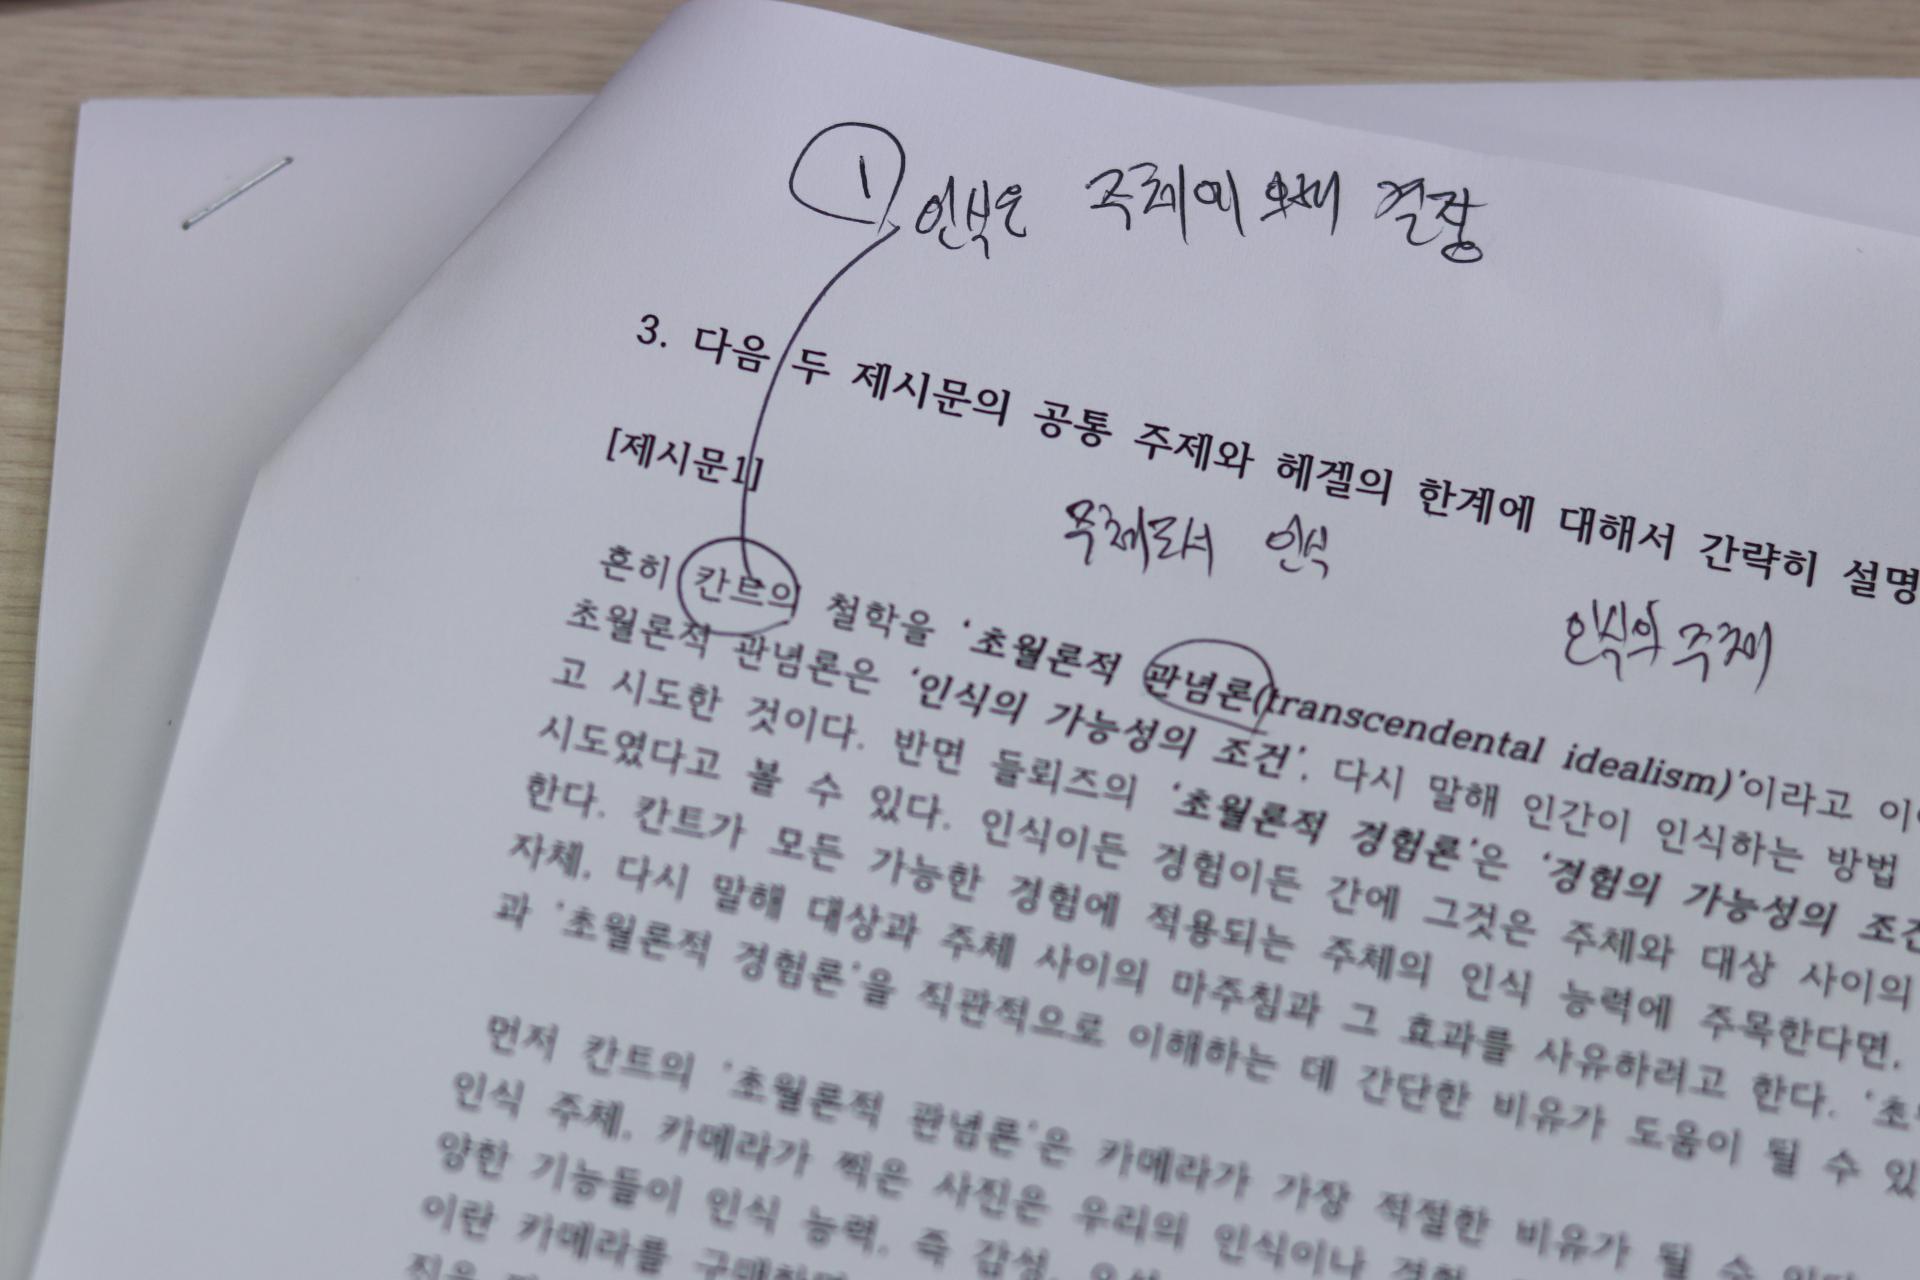 ①
3. 다음 두 제시문의 공통 주제와 헤겔의 한계에 대해서 간략히 설명
[제시문1]
주체로서 인식
인식의 주체
흔히 칸트의 철학을 '초월론적 관념론(transcendental idealism)'이라고
초월론적 관념론은 '인식의 가능성의 조건', 다시 말해 인간이 인식하는 방법
고 시도한 것이다. 반면 들뢰즈의 '초월론적 경험론'은 '경험의 가능성의 조건
시도였다고 볼 수 있다. 인식이든 경험이든 간에 그것은 주체와 대상 사이의
한다. 칸트가 모든 가능한 경험에 적용되는 주체의 인식 능력에 주목한다면,
자체, 다시 말해 대상과 주체 사이의 마주침과 그 효과를 사유하려고 한다. '초
과 '초월론적 경험론'을 직관적으로 이해하는 데 간단한 비유가 도움이 될 수 있
먼저 칸트의 '초월론적 관념론'은 카메라가 가장 적절한 비유가 될 수
인식 주체, 카메라가 찍은 사진은 우리의 인식이나 경험
양한 기능들이 인식 능력, 즉 감성,
이란 카메라를